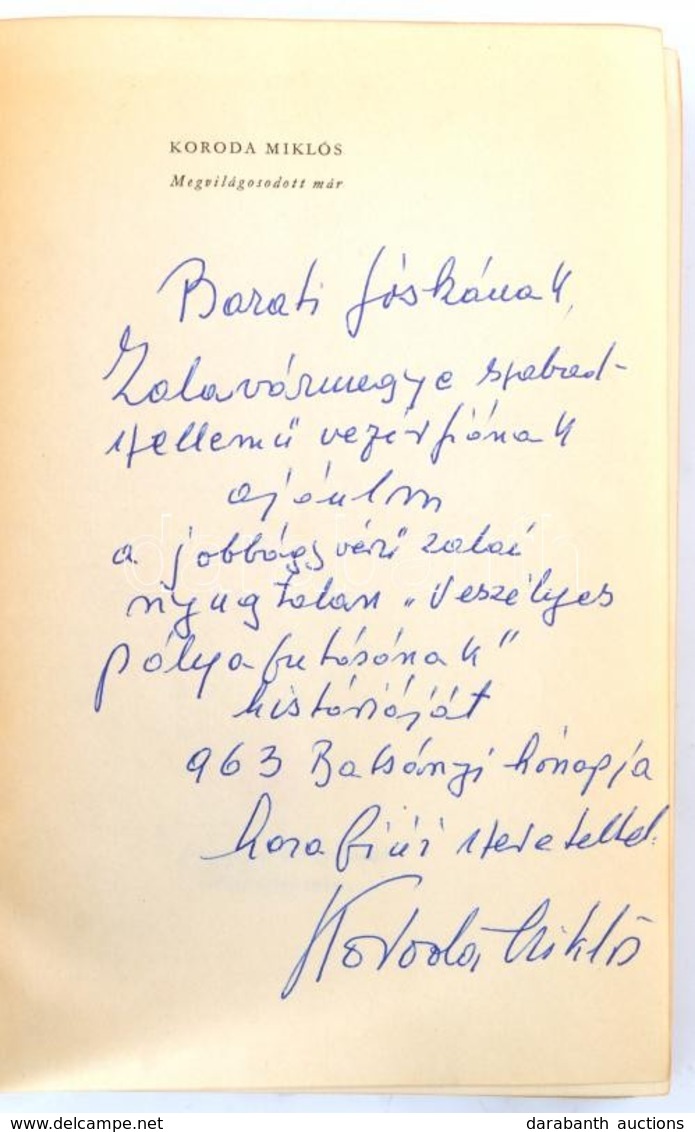 KORODA MIKLÓS
Megvilágosodott már
Barati Jóskának,
Zalavármegye szabad-
szellemű vezérfiának
ajánlom
a jobbágyvérű zalai
nyugtalan „Veszélyes
pályafutásának"
históriáját
963 Batsányi hónapja
hazafiúi szeretettel:
Koroda Miklós
darabanth
www.delcampe.net
darabanth auctions